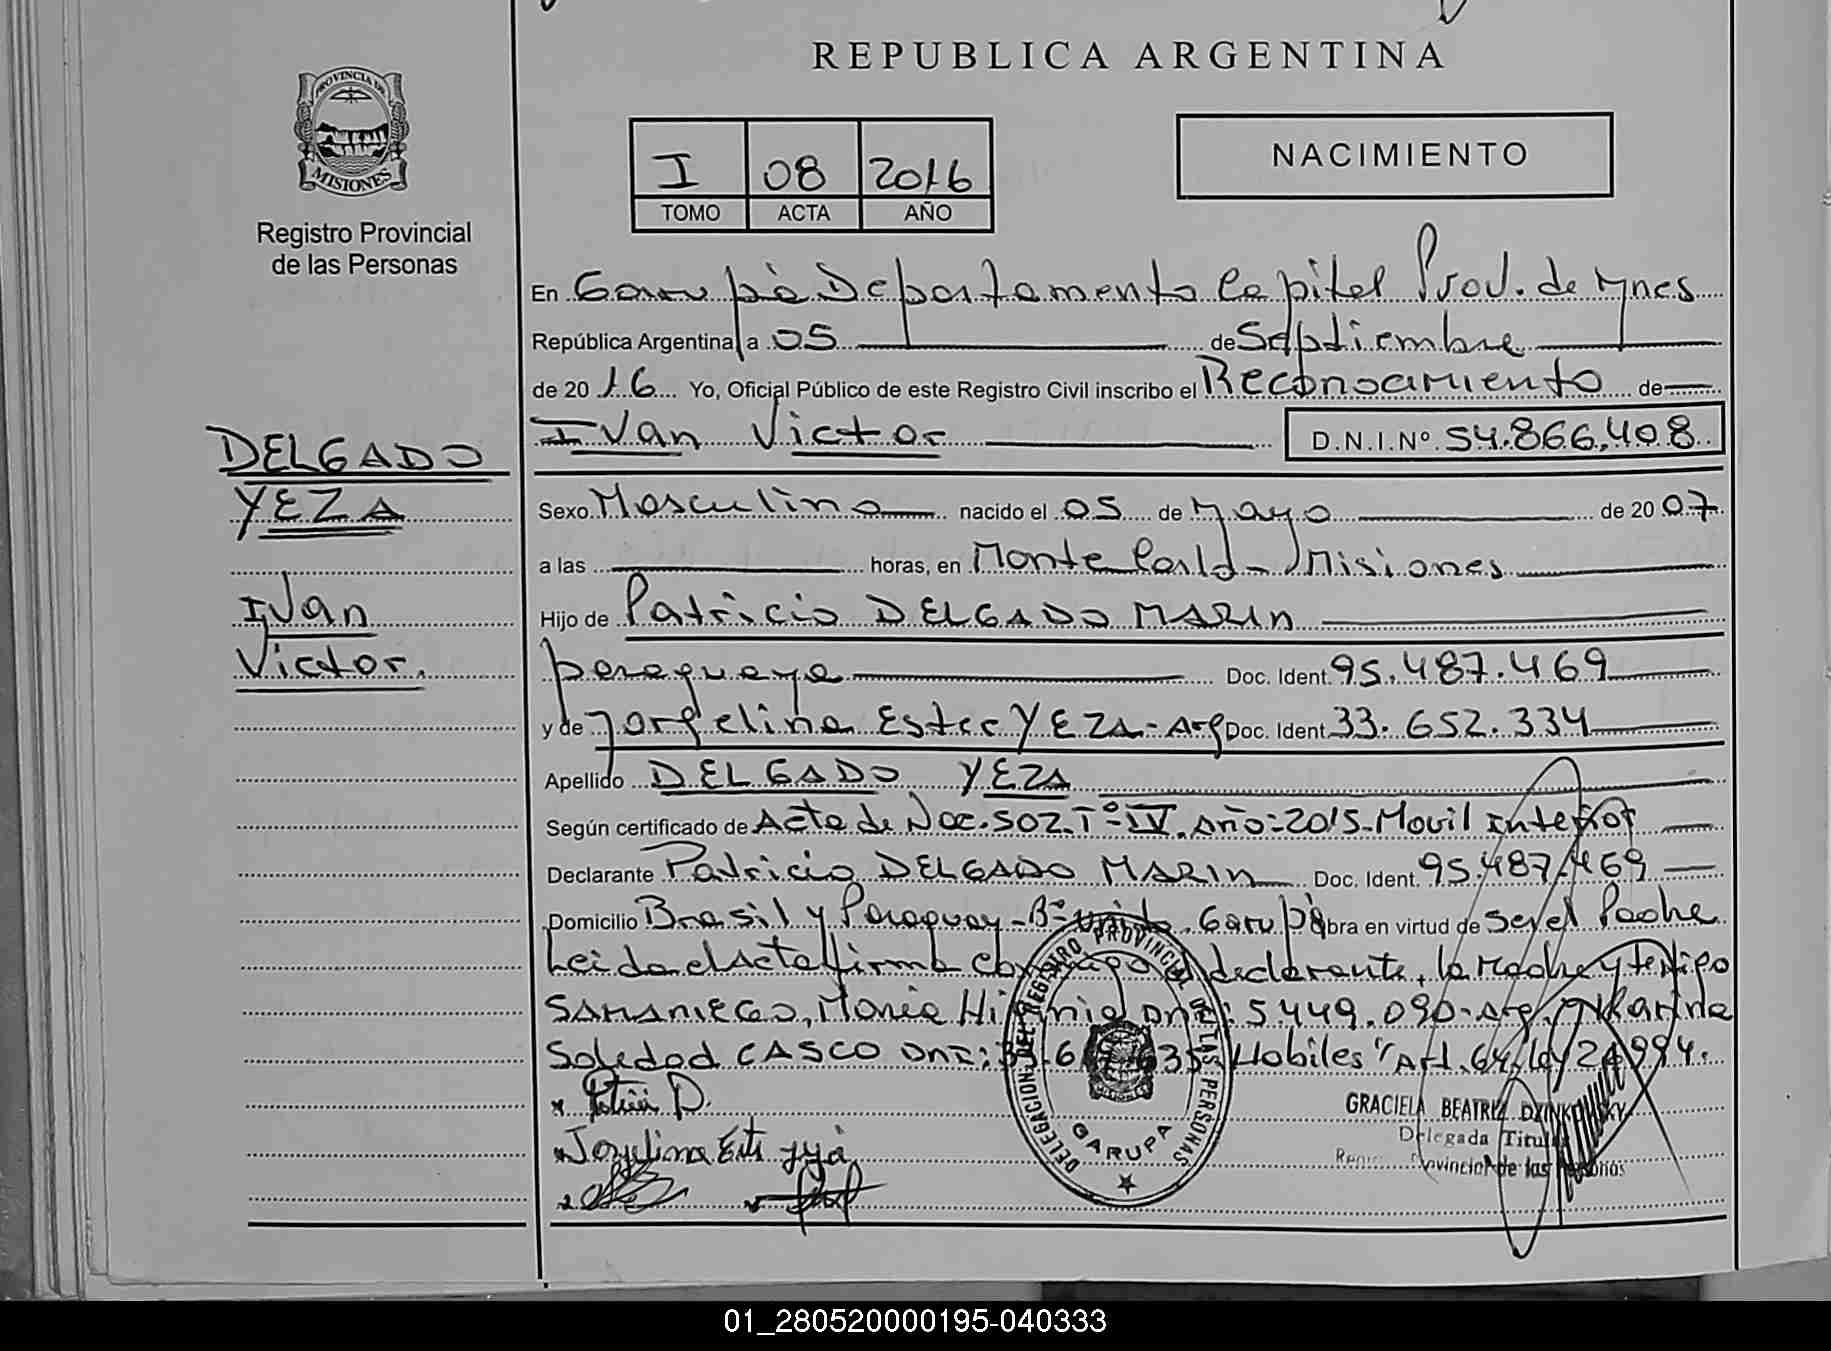 REPUBLICA ARGENTINA
PROVINCIA DE
MISIONES
Registro Provincial
de las Personas
I 08 2016
TOMO ACTA AÑO
NACIMIENTO
En Garupá Departamento Capital Prov. de Mnes
República Argentina, a 05 de Septiembre
de 2016 Yo, Oficial Público de este Registro Civil inscribo el Reconocimiento de
Ivan Victor D.N.I.Nº 54.866.408
DELGADO
YEZA
Ivan
Victor.
Sexo Masculino nacido el 05 de Mayo de 2007
a las horas, en Monte Carlo - Misiones
Hijo de Patricio DELGADO MARIN
paraguaya Doc. Ident. 95.487.469
y de Jorgelina Ester YEZA - Arg Doc. Ident. 33.652.334
Apellido DELGADO YEZA
Según certificado de Acta de Nac. 502. Tº IV. Año: 2015. Movil Interior
Declarante Patricio DELGADO MARIN Doc. Ident. 95.487.469
Domicilio Brasil y Paraguay - Bº Unido. Garupá Obra en virtud de ser el Padre
Leida el Acta firma conmigo el declarante, la Madre y testigo
SAMANIEGO, María Higinia DNI: 5.449.090 - Arg. Karina
Soledad CASCO DNI: 635. Habiles Art. 64, Ley 26994.
Patricio D.
Jorgelina Ester
DELEGACION DEL REGISTRO PROVINCIAL DE LAS PERSONAS
GARUPA
GRACIELA BEATRIZ DZINKOWSKY
Delegada Titular
Registro Provincial de las Personas
01_280520000195-040333